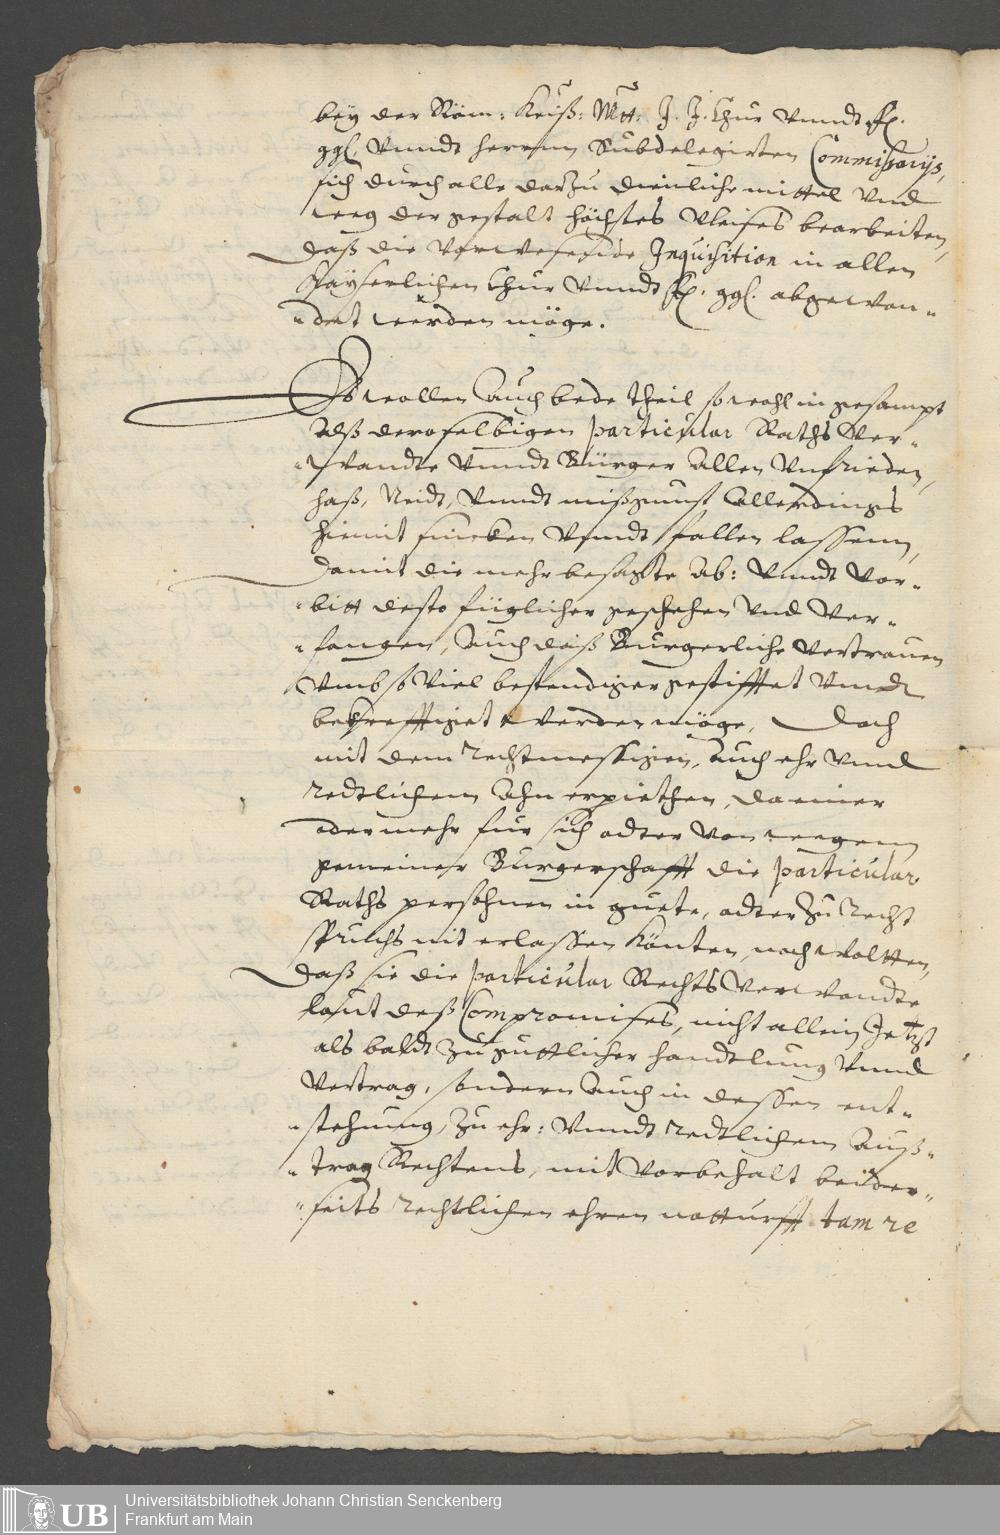 bey der Röm: Keiß: Mtt: J. J. Chur vnndt fl.
ggl. vnndt herrnn Subdelegirten Commissarijs,
sich durch alle darzu dienliche mittel vnd
weeg der gestalt höchstes vleises bearbeiten,
daß die vorwesende Inquisition in allen
Kayserlichen Chur vnndt fl. ggl. abgewen-
-det werden möge.
So wollen auch bede theil so wohl in gesampt
Alß deroselbigen particular Raths Ver-
-wandte vnndt Bürger allen vnfrieden,
haß, Neidt, vnndt mißgunst allerdings
hiemit sincken vnndt fallen lassenn,
damit die mehr besagte Ab: vnndt Vor-
-bitt desto füglicher geschehen vnd ver-
-fangen, auch daß Burgerliche vertrauen
vmb so viel bestendiger gestifftet vnnd
bekrefftiget werden möge, Doch
mit dem rechtmessigen, auch ehr vnnd
redtlichem ahn erpiethen, da einer
oder mehr fur sich odter von weegenn
gemeiner Burgerschafft die particular
Raths persohnen in guete, odter zu recht
spruchs nit erlassen könten, noch wolten,
daß sie die particular Rechts verwandte
laut deß Compromises, nicht allein Jetzt
als baldt zu guttlicher handtlung vnnd
Vertrag, sondern auch in dessen ent-
-stehung, zu ehr: vnndt redtlichem auß-
-trag Rechtens, mit vorbehalt beider-
-seits rechtlichen ehren notturfft tam re
UB
Universitätsbibliothek Johann Christian Senckenberg
Frankfurt am Main